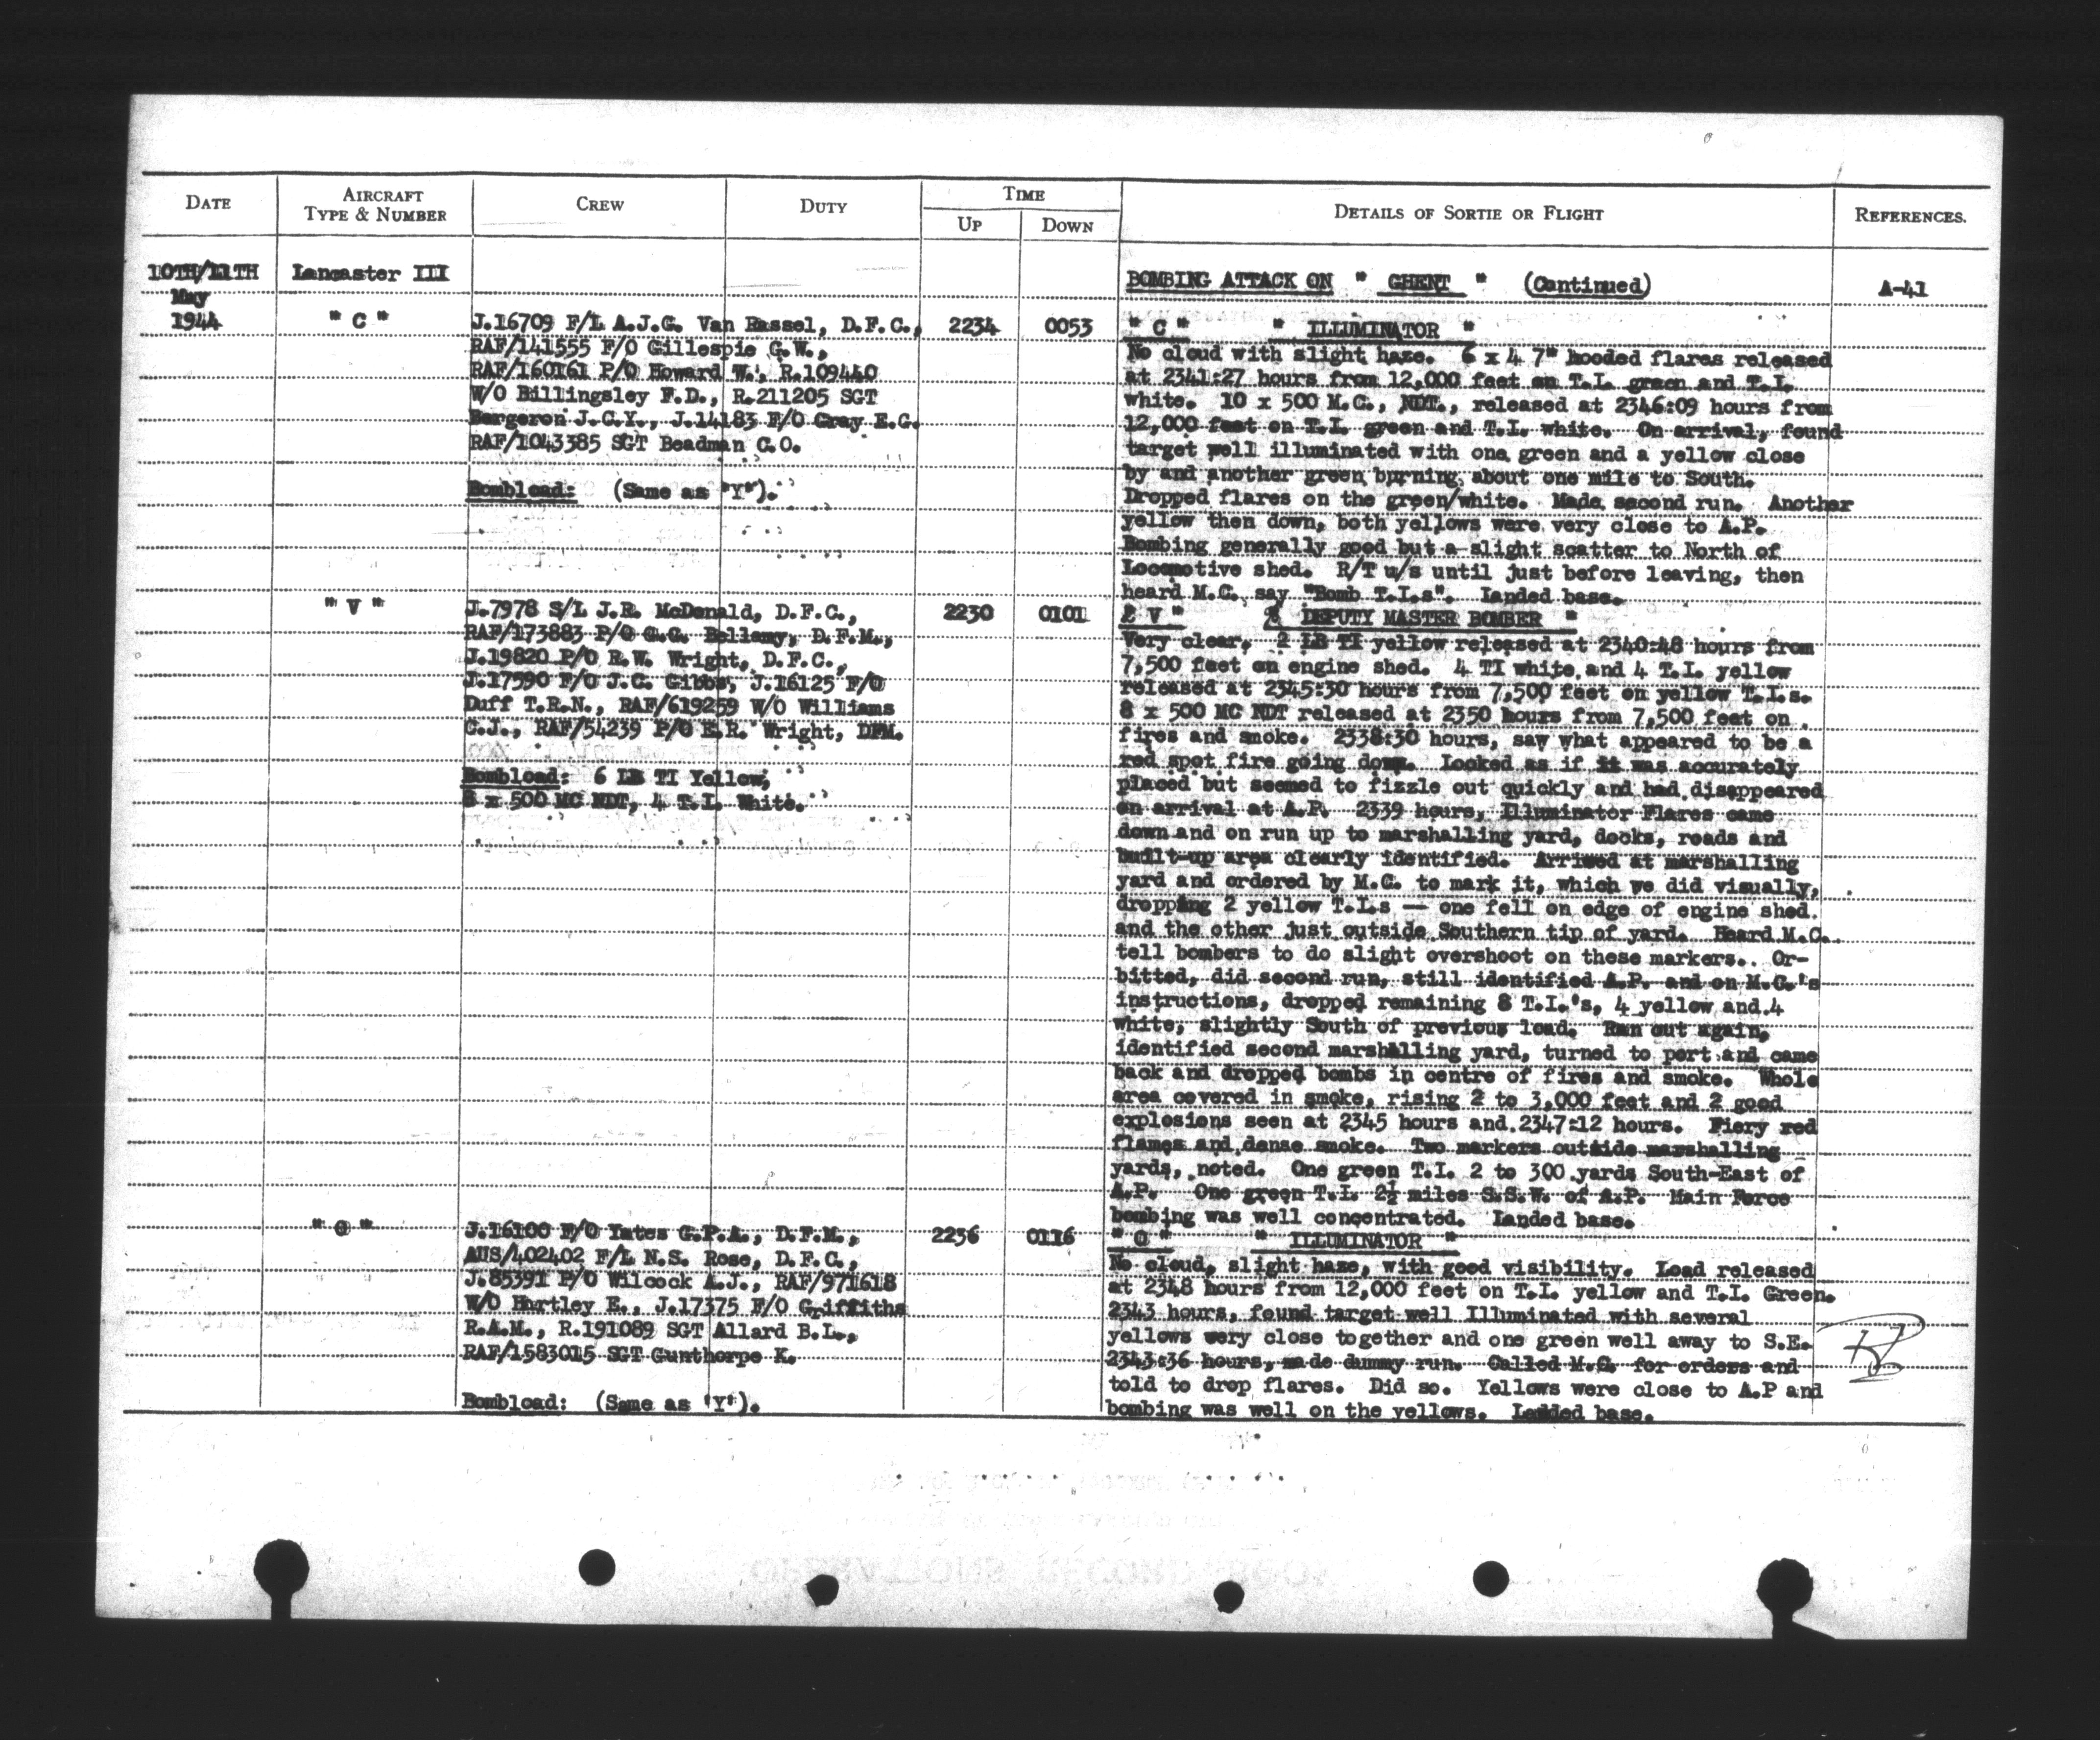 DATE
AIRCRAFT
TYPE & NUMBER
CREW
DUTY
TIME
UP
DOWN
DETAILS OF SORTIE OR FLIGHT
REFERENCES.
10TH/11TH
May
1944
Lancaster III
BOMBING ATTACK ON " GHENT " (Continued)
A-41
" C "
J.16709 F/L A.J.G. Van Rassel, D.F.C.,
RAF/141555 F/O Gillespie G.W.,
RAF/160161 P/O Howard W., R.109440
W/O Billingsley F.D., R.211205 SGT
Bergeron J.C.Y., J.14183 F/O Gray E.G.
RAF/1043385 SGT Beadman C.O.
Bombload: (Same as "Y").
2234
0053
" C " " ILLUMINATOR "
No cloud with slight haze. 6 x 4 7" hooded flares released
at 2341:27 hours from 12,000 feet on T.I. green and T.I.
white. 10 x 500 M.C., NDT., released at 2346:09 hours from
12,000 feet on T.I. green and T.I. white. On arrival, found
target well illuminated with one green and a yellow close
by and another green burning about one mile to South.
Dropped flares on the green/white. Made second run. Another
yellow then down, both yellows were very close to A.P.
Bombing generally good but a slight scatter to North of
Locomotive shed. R/T u/s until just before leaving, then
heard M.C. say "Bomb T.I.s". Landed base.
" V "
J.7978 S/L J.R. McDonald, D.F.C.,
RAF/173883 P/O G.C. Bellamy, D.F.M.,
J.19820 P/O R.W. Wright, D.F.C.,
J.17590 F/O J.C. Gibbs, J.16125 F/O
Duff T.R.N., RAF/619259 W/O Williams
C.J., RAF/54239 P/O E.R. Wright, DFM.
Bombload: 6 LB TI Yellow,
8 x 500 MC NDT, 4 T.I. White.
2230
0101
V " DEPUTY MASTER BOMBER "
Very clear. 2 LB TI yellow released at 2340:48 hours from
7,500 feet on engine shed. 4 TI white and 4 T.I. yellow
released at 2345:30 hours from 7,500 feet on yellow T.I.s.
8 x 500 MC NDT released at 2350 hours from 7,500 feet on
fires and smoke. 2338:30 hours, saw what appeared to be a
red spot fire going down. Looked as if it was accurately
placed but seemed to fizzle out quickly and had disappeared
on arrival at A.P. 2339 hours, Illuminator Flares came
down and on run up to marshalling yard, docks, roads and
built-up area clearly identified. Arrived at marshalling
yard and ordered by M.C. to mark it, which we did visually,
dropping 2 yellow T.I.s — one fell on edge of engine shed.
and the other just outside Southern tip of yard. Heard M.C.
tell bombers to do slight overshoot on these markers.. Or-
bitted, did second run, still identified A.P. and on M.C.'s
instructions, dropped remaining 8 T.I.'s, 4 yellow and 4
white, slightly South of previous load. Ran out again,
identified second marshalling yard, turned to port and came
back and dropped bombs in centre of fires and smoke. Whole
area covered in smoke, rising 2 to 3,000 feet and 2 good
explosions seen at 2345 hours and 2347:12 hours. Fiery red
flames and dense smoke. Two markers outside marshalling
yards, noted. One green T.I. 2 to 300 yards South-East of
A.P. One green T.I. 2½ miles S.S.W. of A.P. Main Force
bombing was well concentrated. Landed base.
" O "
J.16100 F/O Yates G.P.A., D.F.M.,
AUS/402402 F/L N.S. Rose, D.F.C.,
J.85391 P/O Wilcock A.J., RAF/971618
W/O Hartley E., J.17375 F/O Griffiths
R.A.M., R.191089 SGT Allard B.L.,
RAF/1583015 SGT Gunthorpe K.
Bombload: (Same as 'Y').
2236
0116
" O " " ILLUMINATOR "
No cloud, slight haze, with good visibility. Load released
at 2348 hours from 12,000 feet on T.I. yellow and T.I. Green.
2343 hours, found target well Illuminated with several
yellows very close together and one green well away to S.E.
2343:36 hours, made dummy run. Called M.C. for orders and
told to drop flares. Did so. Yellows were close to A.P and
bombing was well on the yellows. Landed base.